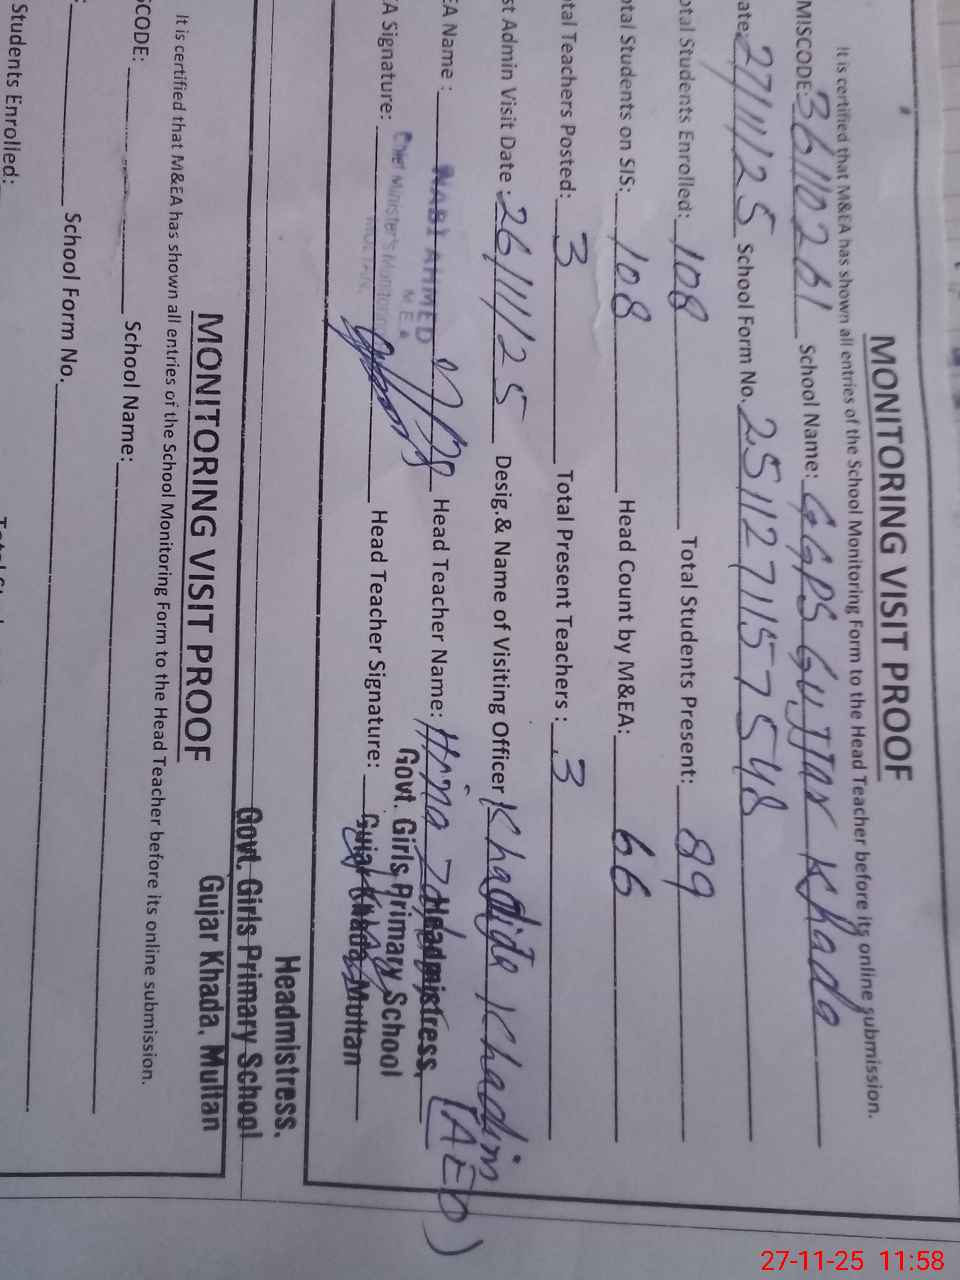 MONITORING VISIT PROOF
It is certified that M&EA has shown all entries of the School Monitoring Form to the Head Teacher before its online submission.
MISCODE: 36110261 School Name: GGPS GUJJAR Khada
ate: 27/11/25 School Form No. 2511271157548
otal Students Enrolled: 108 Total Students Present: 89
otal Students on SIS: 108 Head Count by M&EA: 66
otal Teachers Posted: 3 Total Present Teachers : 3
st Admin Visit Date : 26/11/25 Desig.& Name of Visiting Officer Khadija Khadim (AEO)
EA Name : NABI AHMED Head Teacher Name: Hina
M E A
Chief Minister's Monitoring
MULTAN.
Headmistress,
Govt. Girls Primary School
Gujar Khada, Multan
A Signature: Head Teacher Signature:
Headmistress.
Govt. Girls Primary School
Gujar Khada, Multan
MONITORING VISIT PROOF
It is certified that M&EA has shown all entries of the School Monitoring Form to the Head Teacher before its online submission.
SCODE: School Name:
: School Form No.
Students Enrolled:
27-11-25 11:58